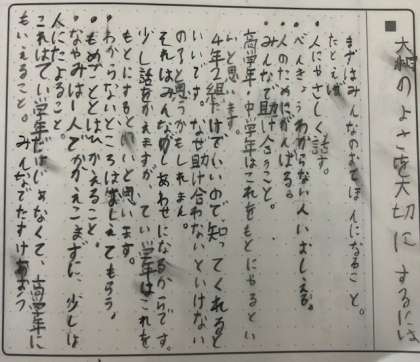 大規のよさを大切にするには
まずはみんなのおてほんになること。
たとえば
・人にやさしく話す。
・べんきょうわからない人いおしえる。
・人のためにがんばる。
・みんなで助け合うこと。
高学年・中学年はこれをもとにやるとい
いと思います。
4年2組だけでいいので知ってくれると
いいです。なぜ助け合わないといけない
の?と思うかもしれません。
それはみんながしあわせになるからです。
少し話をかえますが、てい学年はこれを
もとにするといいと思います。
・わからないところはおしえてもらう。
・もめごとはひかえること。
・なやみは一人でかかえこまずに、少しは
人にたよること。
これはてい学年だけじゃなくて、高学年に
もいえること。みんなでたすけあおう